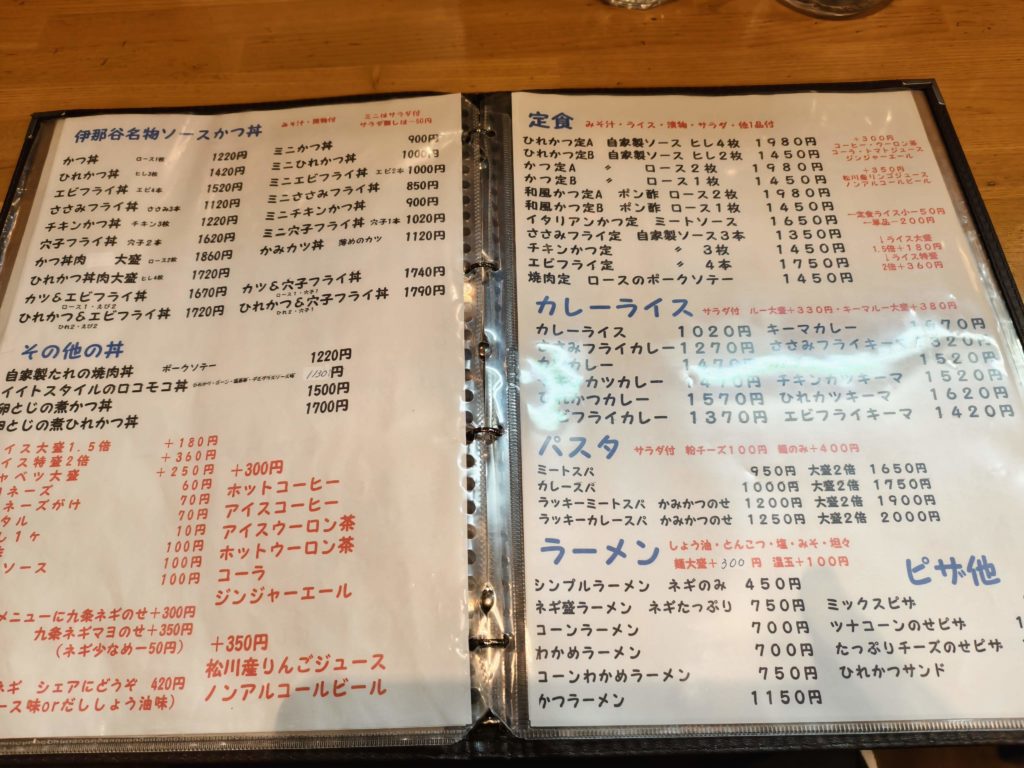 伊那谷名物ソースかつ丼 みそ汁・漬物付 ミニはサラダ付
サラダ無しは-50円
かつ丼 ロース1枚 1220円
ひれかつ丼 ヒレ3枚 1420円
エビフライ丼 エビ4本 1520円
ささみフライ丼 ささみ3本 1120円
チキンかつ丼 チキン3枚 1220円
穴子フライ丼 穴子2本 1620円
かつ丼肉 大盛 ロース2枚 1860円
ひれかつ丼肉大盛 ヒレ4枚 1720円
カツ&エビフライ丼 1670円
ロース1・えび2
ひれかつ&エビフライ丼 1720円
ひれ2・えび2
ミニかつ丼 900円
ミニひれかつ丼 1000円
ミニエビフライ丼 エビ2本 1000円
ミニささみフライ丼 850円
ミニチキンかつ丼 900円
ミニ穴子フライ丼 穴子1本 1020円
かみカツ丼 薄めのカツ 1120円
カツ&穴子フライ丼 1740円
ロース1・穴子1
ひれかつ&穴子フライ丼 1790円
ひれ2・穴子1
その他の丼
自家製たれの焼肉丼 ポークソテー 1220円
イイトスタイルのロコモコ丼 1130円
卵とじの煮かつ丼 1500円
卵とじの煮ひれかつ丼 1700円
イス大盛1.5倍 +180円
イス特盛2倍 +360円
ャベツ大盛 +250円
ヨネーズ 60円
ネーズがけ 70円
タル 70円
し1ヶ 10円
100円
ソース 100円
100円
メニューに九条ネギのせ+300円
九条ネギマヨのせ+350円
(ネギ少なめ-50円)
ネギ シェアにどうぞ 420円
ース味orだししょう油味)
+300円
ホットコーヒー
アイスコーヒー
アイスウーロン茶
ホットウーロン茶
コーラ
ジンジャーエール
+350円
松川産りんごジュース
ノンアルコールビール
定食 みそ汁・ライス・漬物・サラダ・他1品付
ひれかつ定A 自家製ソース ヒレ4枚 1980円
ひれかつ定B 自家製ソース ヒレ2枚 1450円
かつ定A 〃 ロース2枚 1980円
かつ定B 〃 ロース1枚 1450円
和風かつ定A ポン酢 ロース2枚 1980円
和風かつ定B ポン酢 ロース1枚 1450円
イタリアンかつ定 ミートソース 1650円
ささみフライ定 自家製ソース3本 1350円
チキンかつ定 〃 3枚 1450円
エビフライ定 〃 4本 1750円
焼肉定 ロースのポークソテー 1450円
+300円
コーヒー・ウーロン茶
コーラ・トマトジュース
ジンジャーエール
+350円
松川産リンゴジュース
ノンアルコールビール
一定食ライス小-50円
一単品-200円
↓ライス大盛
1.5倍+180円
↓ライス特盛
2倍+360円
カレーライス サラダ付 ルー大盛+330円・キーマルー大盛+380円
カレーライス 1020円 キーマカレー
ささみフライカレー 1270円 ささみフライキーマ
カレー 1470円 1520円
カツカレー 1470円 チキンカツキーマ 1520円
ひれかつカレー 1570円 ひれカツキーマ 1620円
エビフライカレー 1370円 エビフライキーマ 1420円
パスタ サラダ付 粉チーズ100円 麺のみ+400円
ミートスパ 950円 大盛2倍 1650円
カレースパ 1000円 大盛2倍 1750円
ラッキーミートスパ かみかつのせ 1200円 大盛2倍 1900円
ラッキーカレースパ かみかつのせ 1250円 大盛2倍 2000円
ラーメン しょう油・とんこつ・塩・みそ・坦々
麺大盛+300円 温玉+100円
シンプルラーメン ネギのみ 450円
ネギ盛ラーメン ネギたっぷり 750円
コーンラーメン 700円
わかめラーメン 700円
コーンわかめラーメン 750円
かつラーメン 1150円
ピザ他
ミックスピザ
ツナコーンのせピザ
たっぷりチーズのせピザ
ひれかつサンド